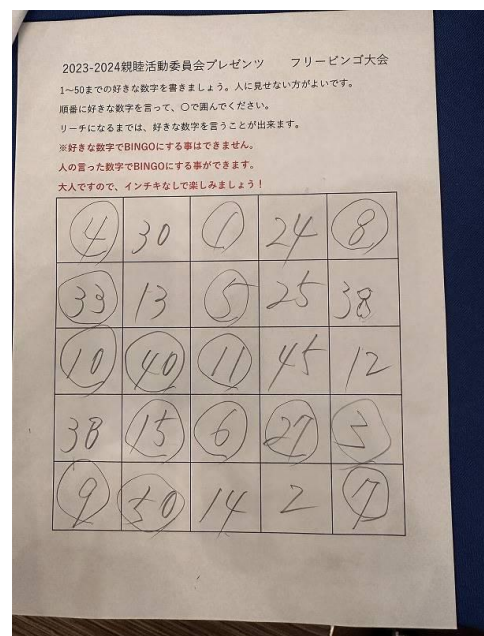 2023-2024親睦活動委員会プレゼンツ　フリービンゴ大会
1〜50までの好きな数字を書きましょう。人に見せない方がよいです。
順番に好きな数字を言って、〇で囲んでください。
リーチになるまでは、好きな数字を言うことが出来ます。
※好きな数字でBINGOにする事はできません。
人の言った数字でBINGOにする事ができます。
大人ですので、インチキなしで楽しみましょう！
4 30 1 24 8
33 13 5 25 38
10 40 11 45 12
38 15 6 27 3
9 50 14 2 7